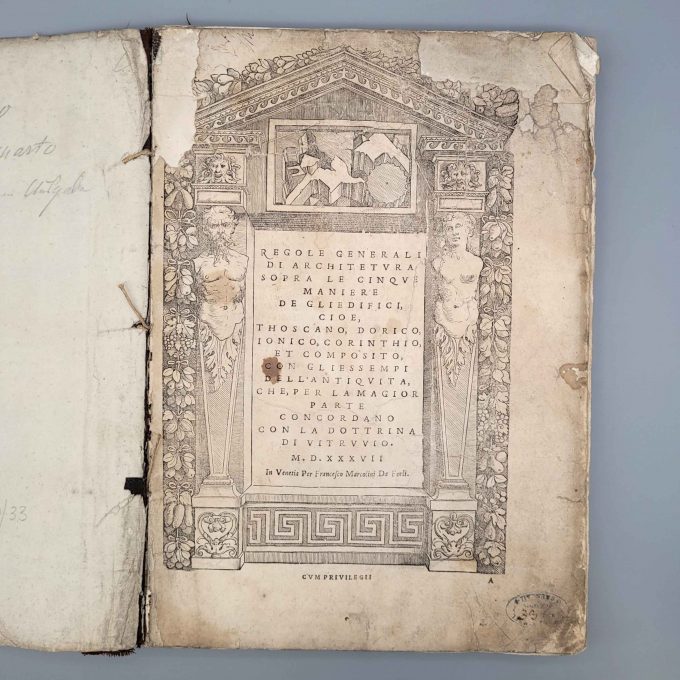 REGOLE GENERALI
DI ARCHITETVRA
SOPRA LE CINQVE
MANIERE
DE GLIEDIFICI,
CIOE,
THOSCANO, DORICO,
IONICO, CORINTHIO,
ET COMPOSITO,
CON GLIESSEMPI
DELL'ANTIQVITA,
CHE, PER LAMAGIOR
PARTE
CONCORDANO
CON LA DOTTRINA
DI VITRVVIO.
M. D. XXXVII
In Venetia Per Francesco Marcolini Da Forlì.
CVM PRIVILEGII
A